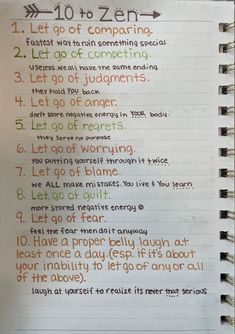 10 to Zen
1. Let go of comparing.
fastest way to ruin something special
2. Let go of competing.
useless, we all have the same ending
3. Let go of judgments.
they hold YOU back
4. Let go of anger.
don't store negative energy in YOUR body.
5. Let go of regrets.
they serve no purpose
6. Let go of worrying.
you putting yourself through it twice
7. Let go of blame.
we ALL make mistakes. You live & You learn
8. Let go of guilt.
more stored negative energy
9. Let go of fear.
feel the fear then do it anyway
10. Have a proper belly laugh at
least once a day (esp. if it's about
your inability to let go of any or all
of the above).
laugh at yourself to realize its never that serious